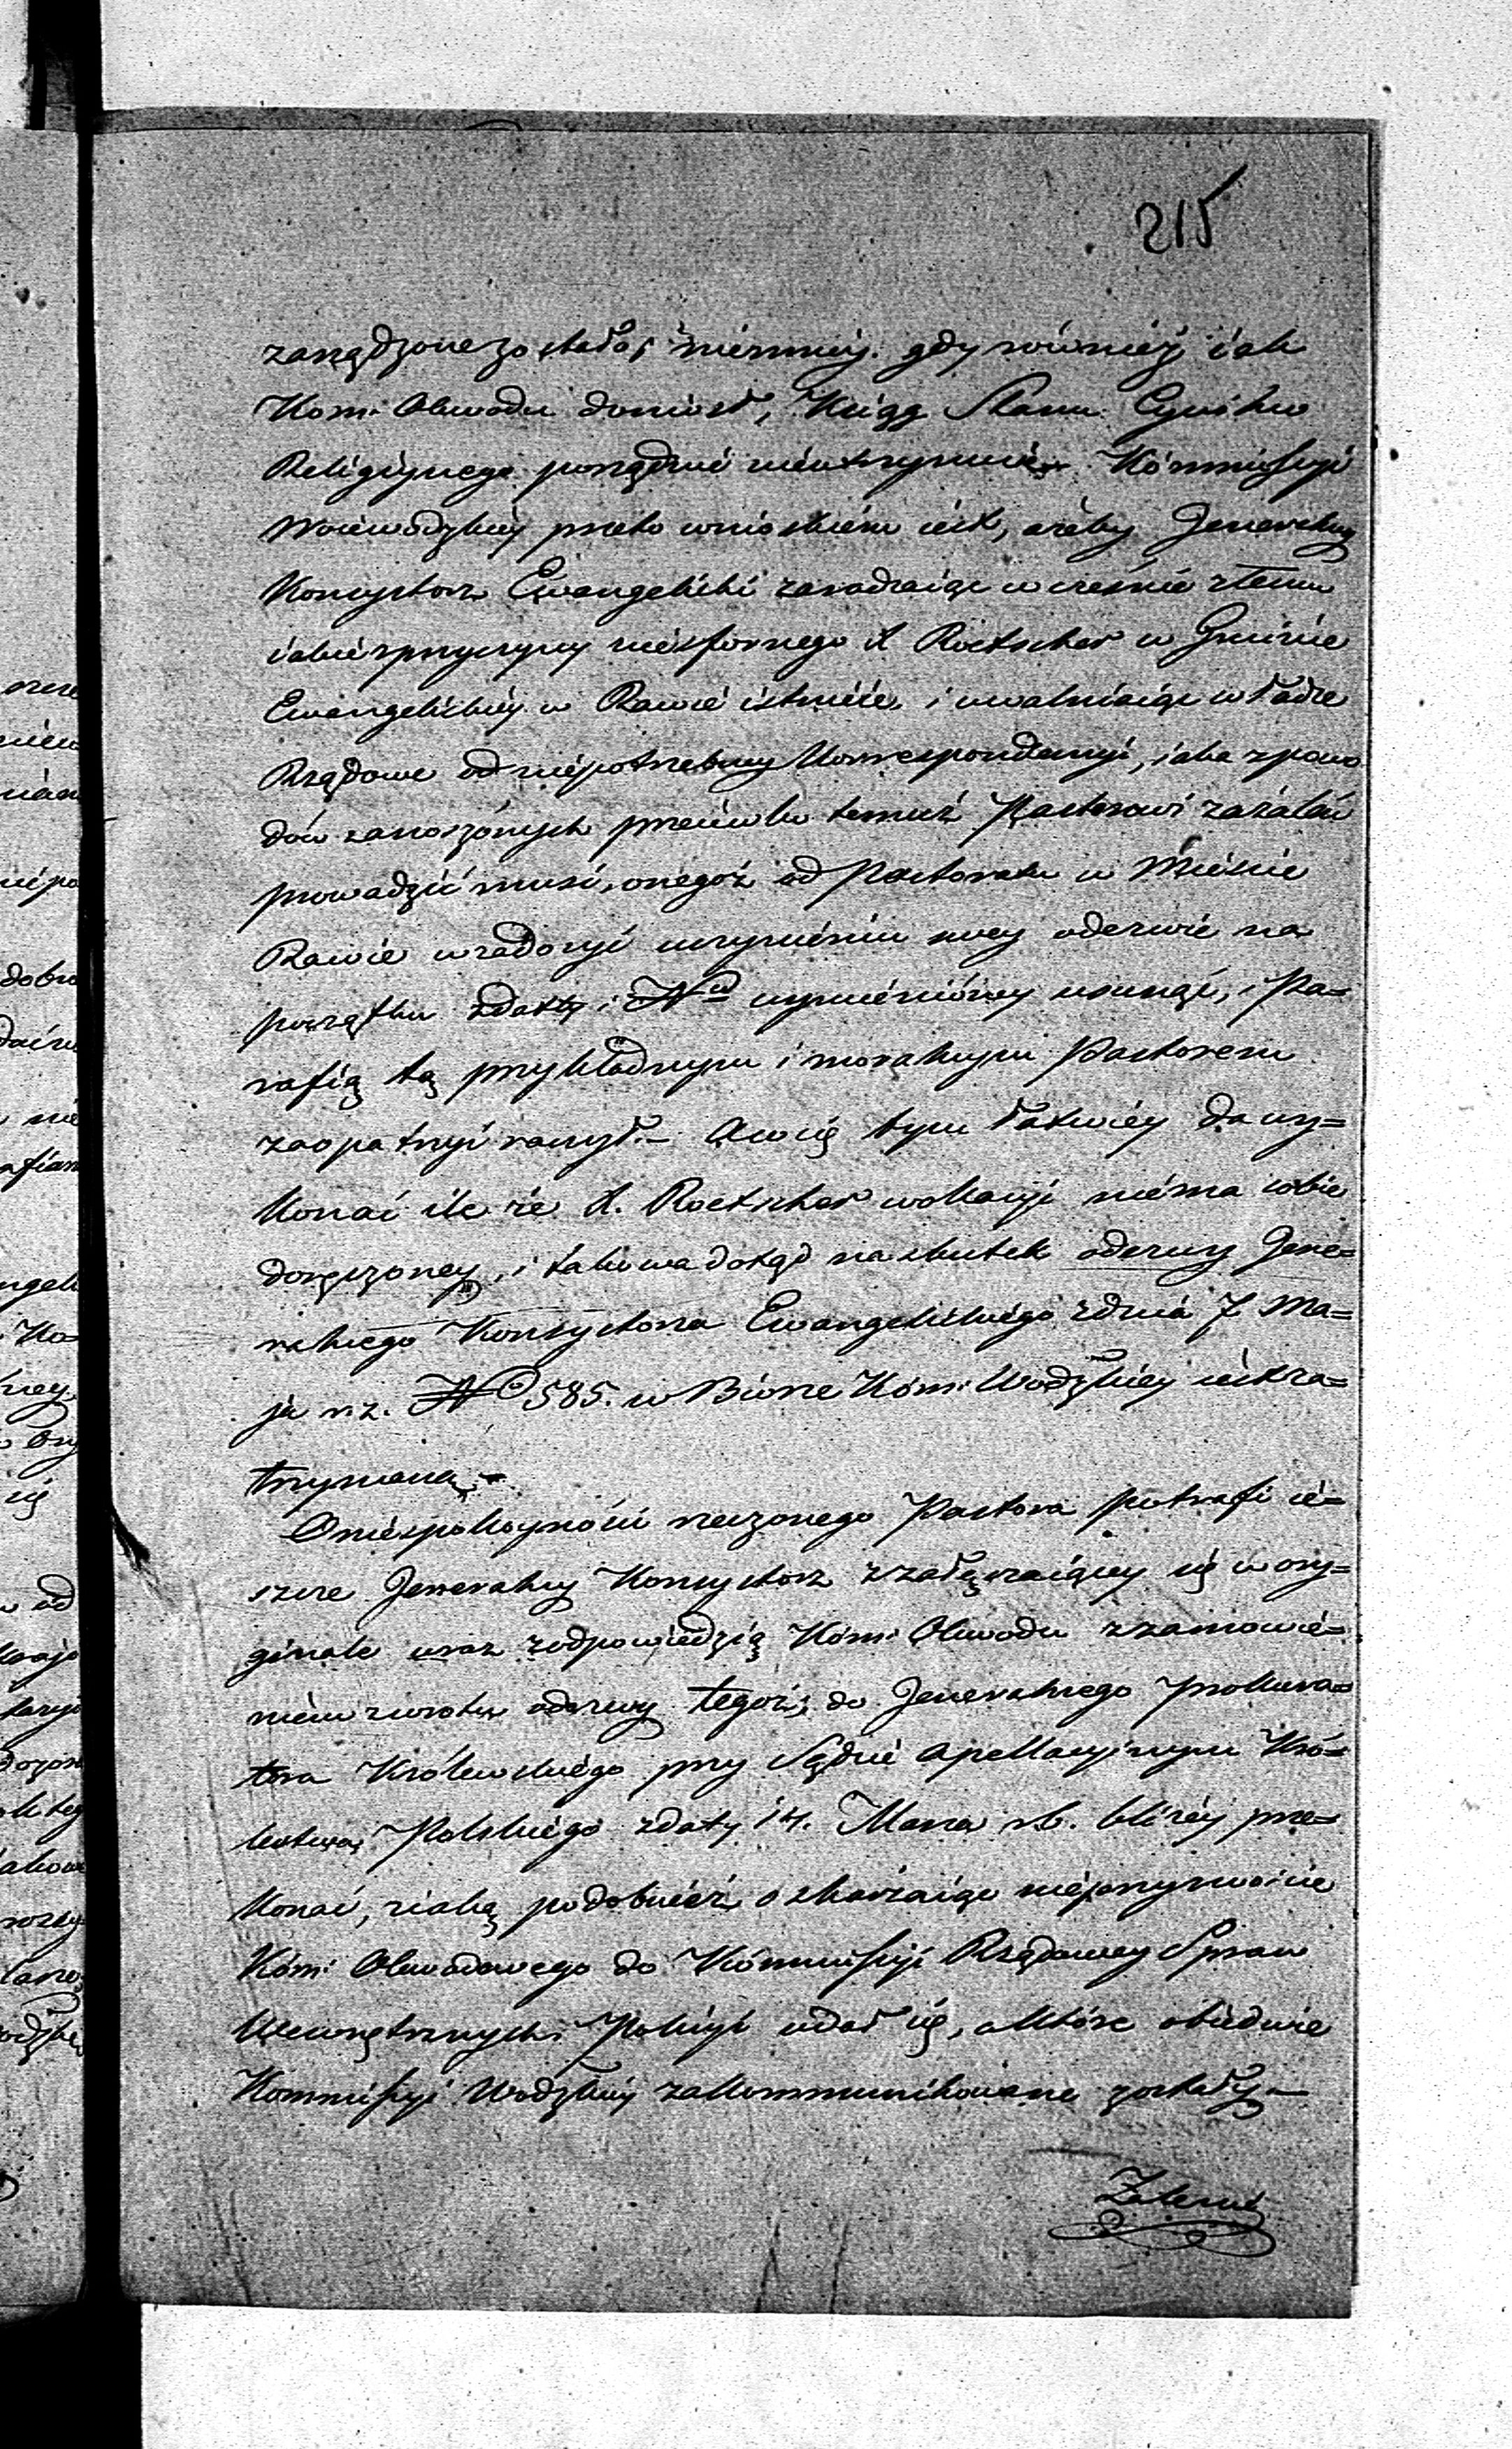 215
zarządzone zostało, niemniej gdy również iak
Kom: Obwodu doniosł, Xiąg Stanu Cywilno
Religijnego porządnie nieutrzymuie. Kommissyi
Woiewodzkiey przeto wnioskiem iest, ażeby Jeneralny
Konsystorz Ewangelicki zaradzaiąc wcześnie złemu
iakie z przyczyny niesfornego X Roetscher w Gminie
Ewangelickiey w Rawie istnieie, i uwalniaiąc władze
Rządowe od niepotrzebney Korrespondencyi, iaka z powo
dów zanoszonych przeciwko temuż Pastorowi zażaleń
prowadzić musi, onegoż od Pastoratu w Mieście
Rawie w radacyi wymieniu swey odezwie na
początku z daty i No wymienioney usunąć, i Pa=
rafią tą przykładnym i moralnym Pastorem
zaopatrzyć raczył.— Co się tym łatwiey da wy=
konać ile że X. Roetscher wokacyi niema sobie
doręczoney, i takowa dotąd na skutek odezwy Gene=
ralnego Konsystorza Ewangelickiego z dnia 7 Ma=
ja r. z. No 585. w Biorze Kom: Wodzkiey iest za=
trzymana.—
O niespokoyności rzeczonego Pastora potrafi ie=
szcze Jeneralny Konsystorz z załączaiącey się w ory=
ginale wraz z odpowiedzią Kom: Obwodu z zamówie=
niem zwrotu odezwy tegoż, do Jeneralnego Prokura=
tora Królewskiego przy Sądzie Apellacyjnym Kró=
lestwa Polskiego z daty 14. Marca r. b. bliżey prze=
konać, z iaką podobnież oskarżaiąc nieprzyzwoicie
Kom: Obwodowego do Kommissyi Rządowey Spraw
Wewnętrznych i Policyi udał się, a które obiedwie
Kommissyi Wodzkiey zakommunikowane zostały.—